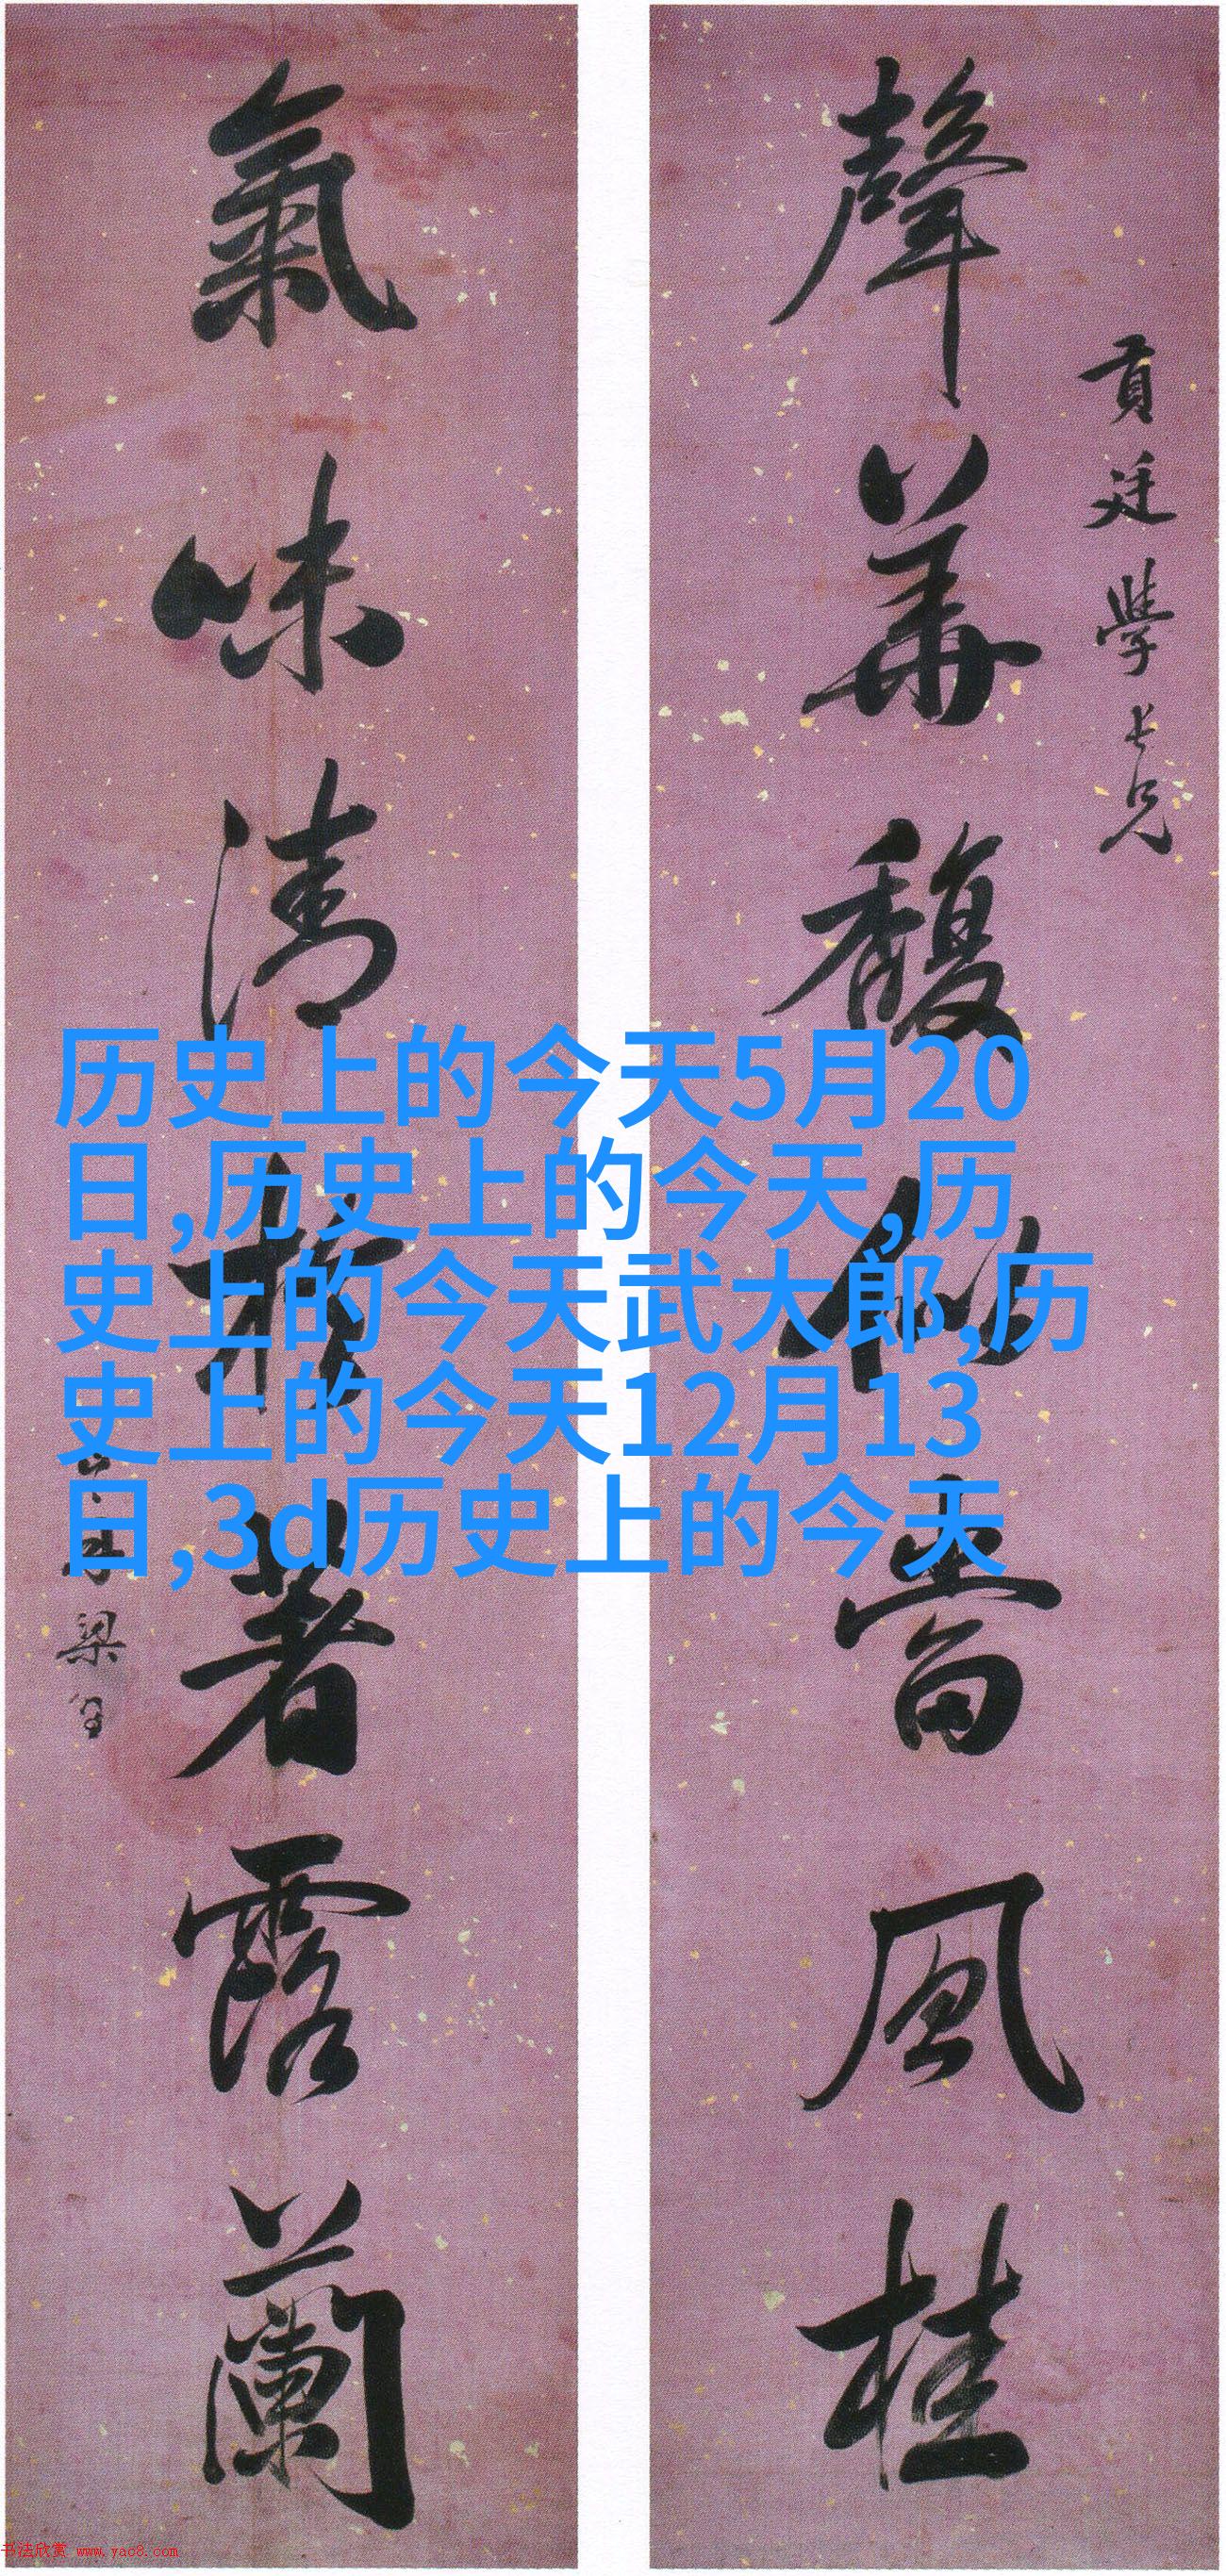 貢廷學長兄
聲華馥似當風桂
氣味清於著露蘭
梁
历史上的今天5月20
日,历史上的今天,历
史上的今天武大郎,历
史上的今天12月13
日,3d历史上的今天
书法欣赏 www.yac8.com